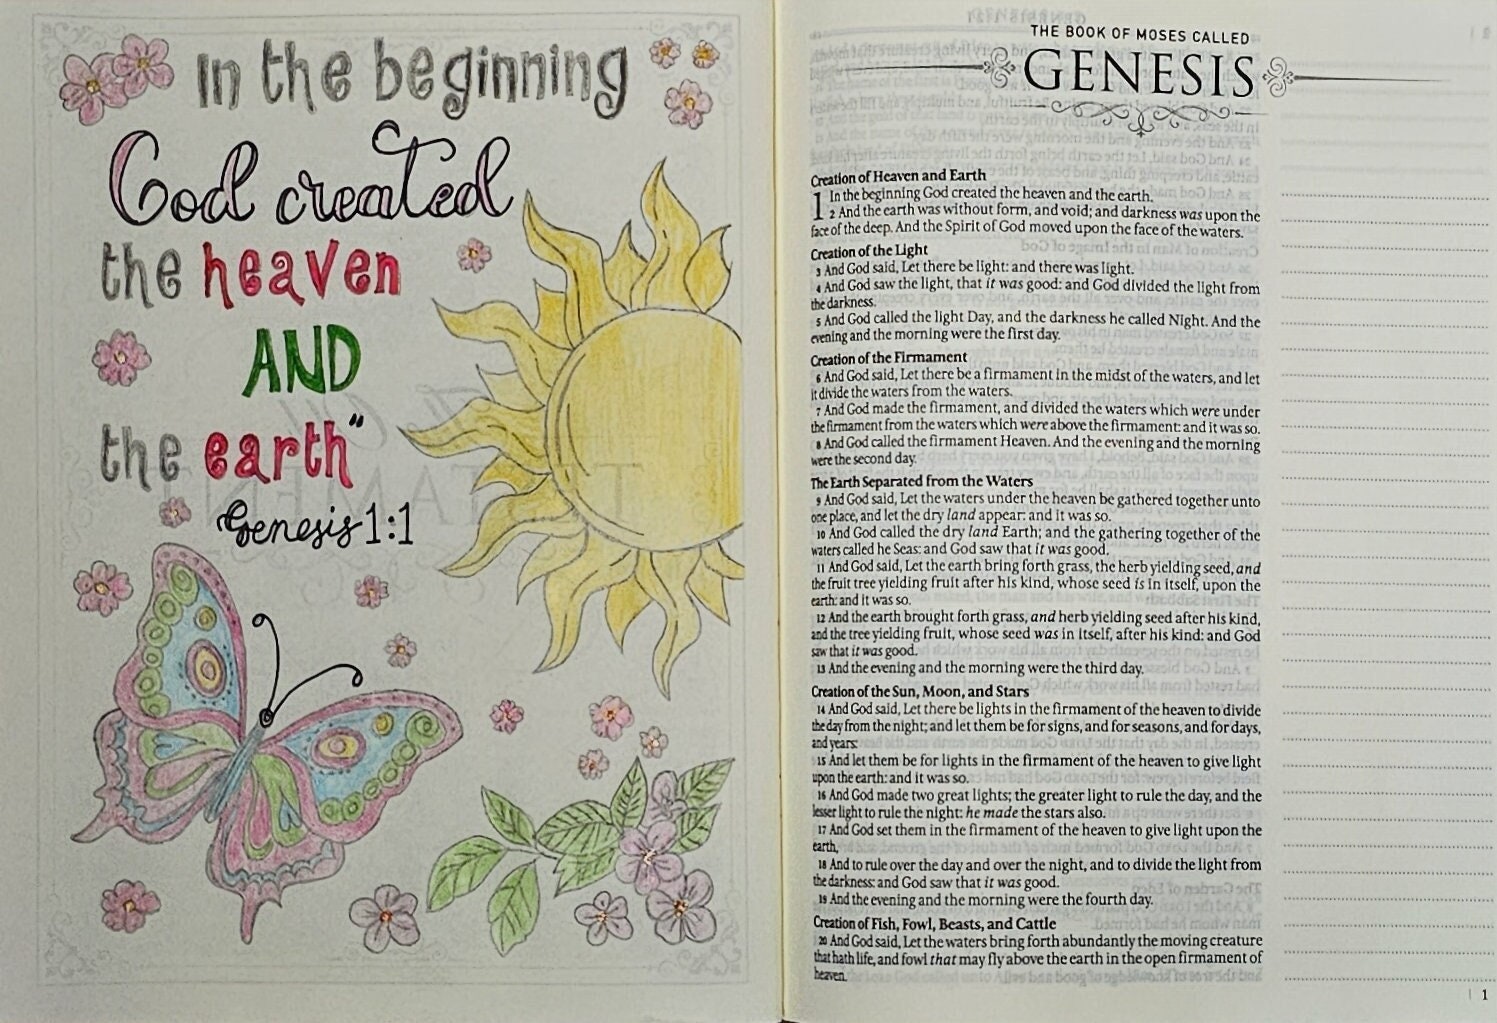 In the beginning
God created
the heaven
AND
the earth"
Genesis 1:1
THE BOOK OF MOSES CALLED
GENESIS
Creation of Heaven and Earth
1 In the beginning God created the heaven and the earth.
2 And the earth was without form, and void; and darkness was upon the
face of the deep. And the Spirit of God moved upon the face of the waters.
Creation of the Light
3 And God said, Let there be light: and there was light.
4 And God saw the light, that it was good: and God divided the light from
the darkness.
5 And God called the light Day, and the darkness he called Night. And the
evening and the morning were the first day.
Creation of the Firmament
6 And God said, Let there be a firmament in the midst of the waters, and let
it divide the waters from the waters.
7 And God made the firmament, and divided the waters which were under
the firmament from the waters which were above the firmament: and it was so.
8 And God called the firmament Heaven. And the evening and the morning
were the second day.
The Earth Separated from the Waters
9 And God said, Let the waters under the heaven be gathered together unto
one place, and let the dry land appear: and it was so.
10 And God called the dry land Earth; and the gathering together of the
waters called he Seas: and God saw that it was good.
11 And God said, Let the earth bring forth grass, the herb yielding seed, and
the fruit tree yielding fruit after his kind, whose seed is in itself, upon the
earth: and it was so.
12 And the earth brought forth grass, and herb yielding seed after his kind,
and the tree yielding fruit, whose seed was in itself, after his kind: and God
saw that it was good.
13 And the evening and the morning were the third day.
Creation of the Sun, Moon, and Stars
14 And God said, Let there be lights in the firmament of the heaven to divide
the day from the night; and let them be for signs, and for seasons, and for days,
and years:
15 And let them be for lights in the firmament of the heaven to give light
upon the earth: and it was so.
16 And God made two great lights; the greater light to rule the day, and the
lesser light to rule the night: he made the stars also.
17 And God set them in the firmament of the heaven to give light upon the
earth,
18 And to rule over the day and over the night, and to divide the light from
the darkness: and God saw that it was good.
19 And the evening and the morning were the fourth day.
Creation of Fish, Fowl, Beasts, and Cattle
20 And God said, Let the waters bring forth abundantly the moving creature
that hath life, and fowl that may fly above the earth in the open firmament of
heaven.
1